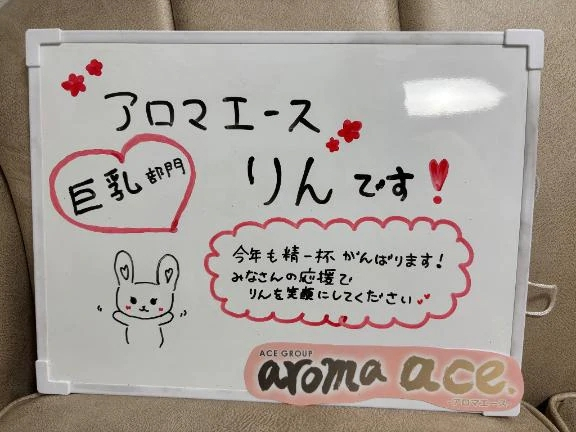 アロマエース
巨乳部門
りんです!
今年も精一杯がんばります!
みなさんの応援で
りんを笑顔にしてください
ACE GROUP
aroma ace.
-アロマエース-